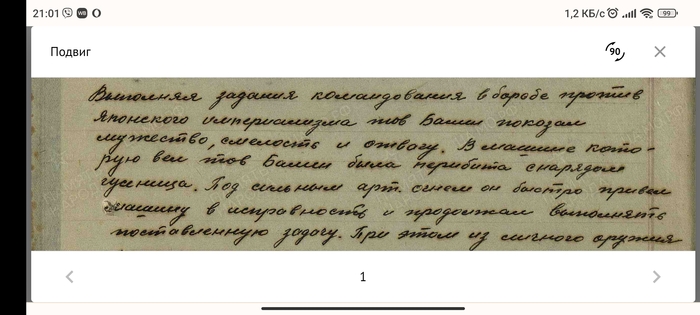 21:01
1,2 КБ/с
99
Подвиг
90
Выполняя задания командования в борьбе против
Японского империализма тов показал
мужество, смелость и отвагу. В машине кото-
рую вел тов была перебита снарядом
гусеница. Под сильным арт. огнем он быстро привел
машину в исправность и продолжал выполнять
поставленную задачу. При этом из личного оружия
1